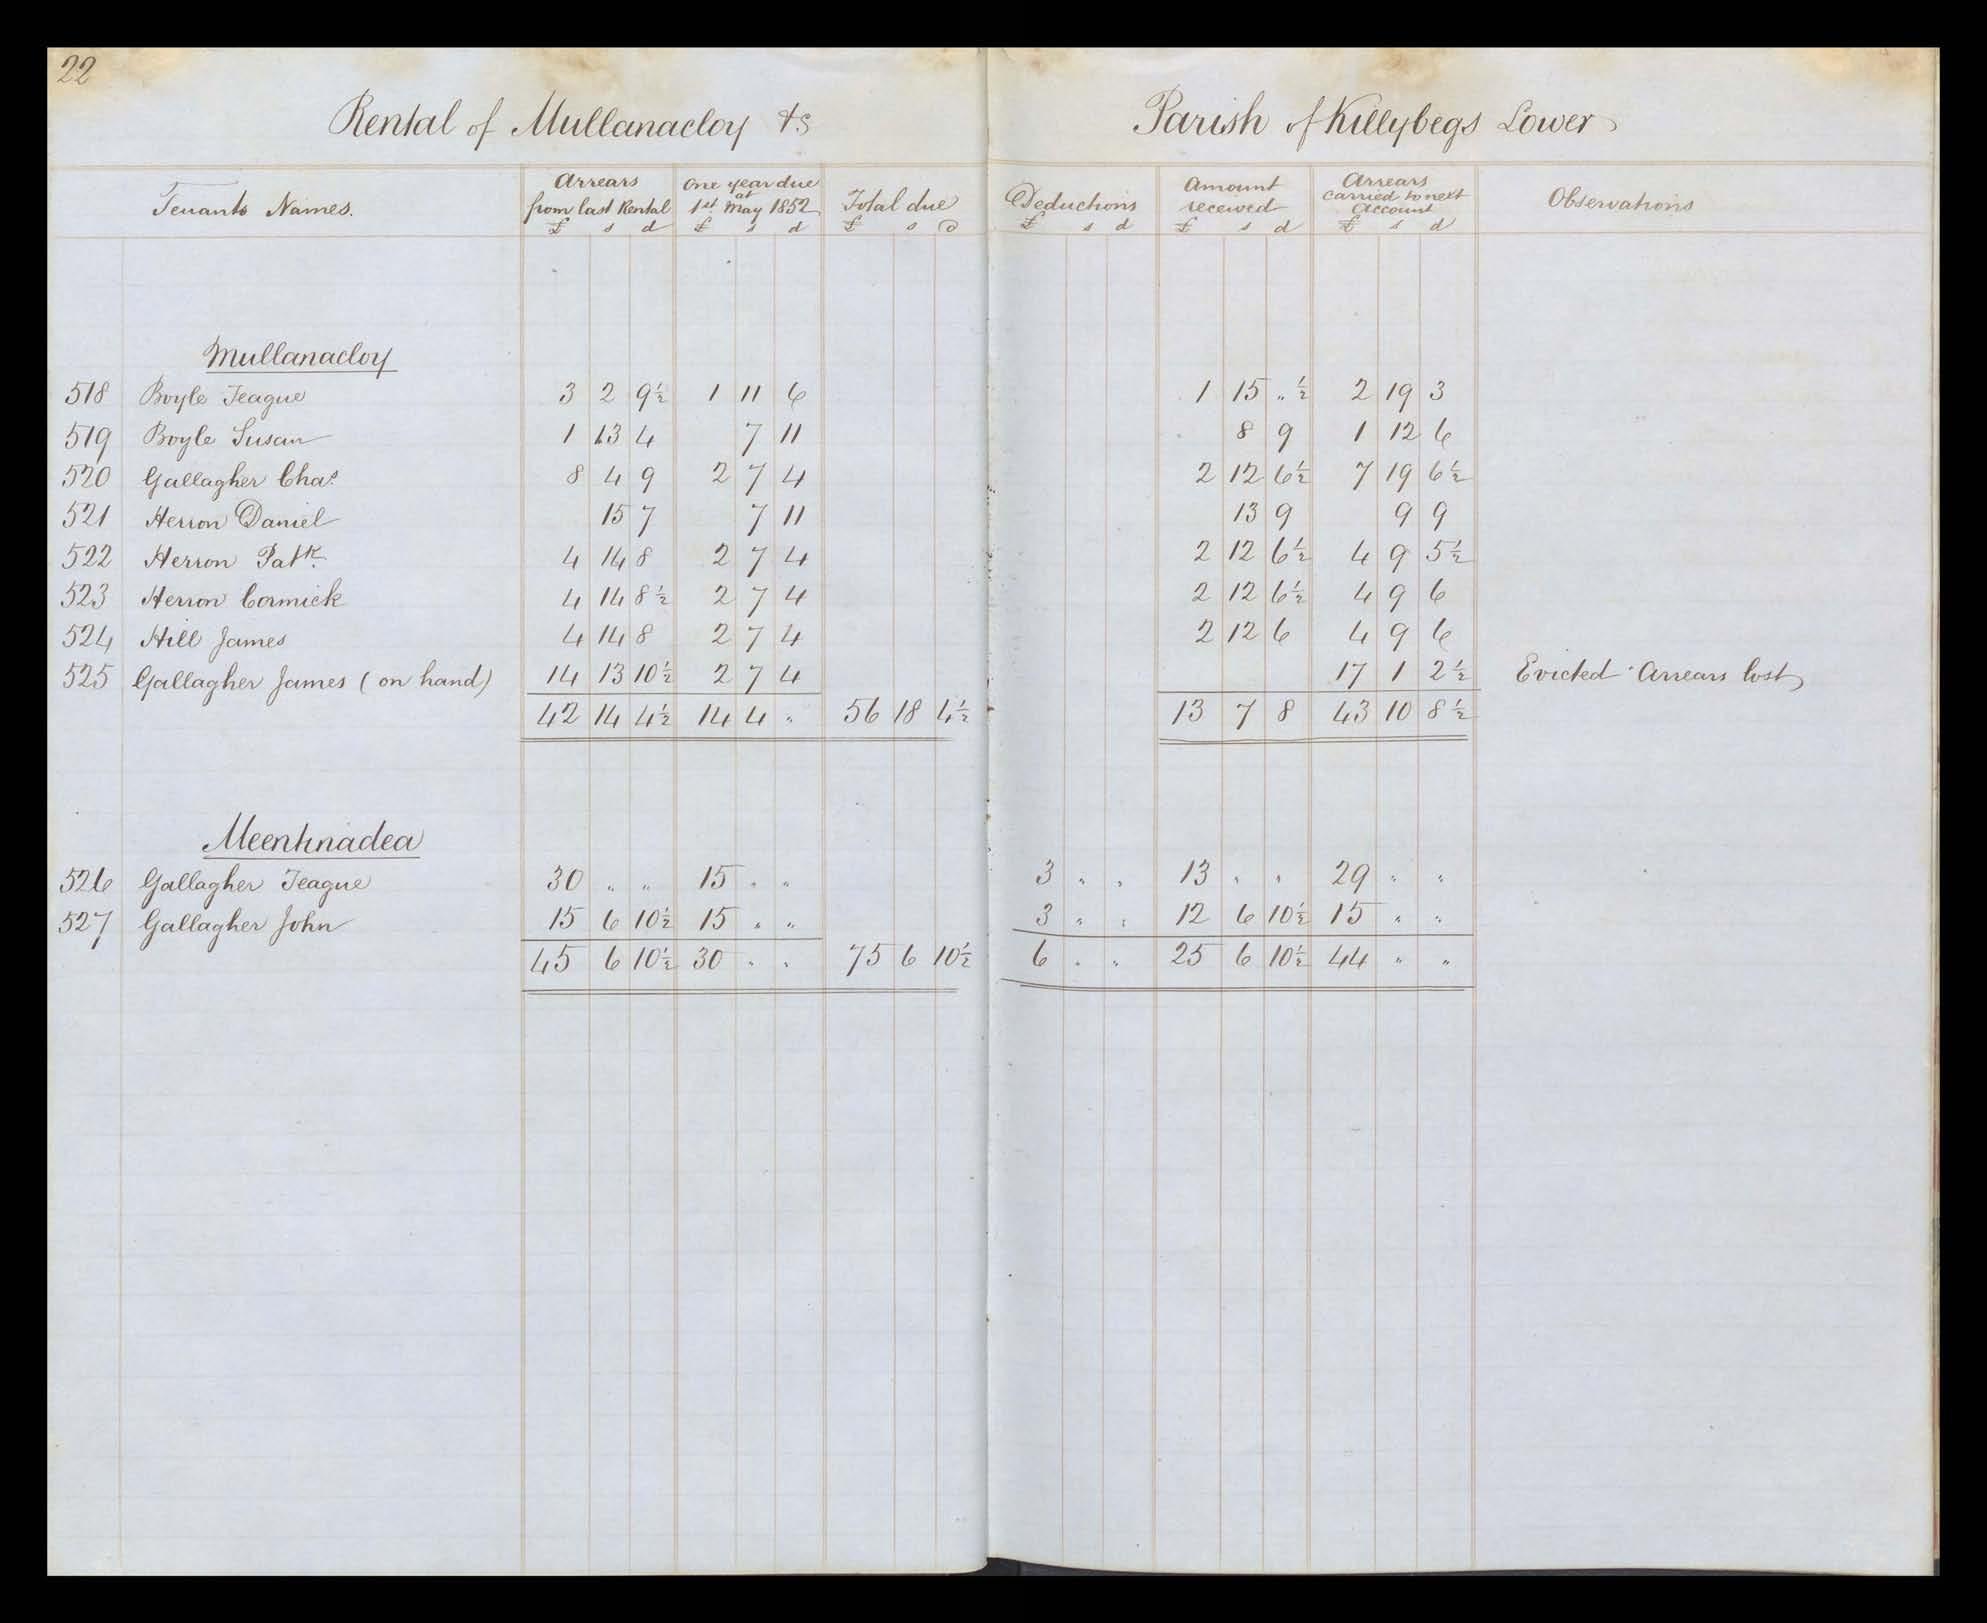 22
Rental of Mullanacloy &c Parish of Killybegs Lower
Tenants Names. Arrears from last Rental £ s d One year due at 1st May 1852 £ s d Total due £ s d Deductions £ s d Amount received £ s d Arrears carried to next Account £ s d Observations
Mullanacloy
518 Boyle Teague 3 2 9½ 1 11 6 1 15 „ ½ 2 19 3
519 Boyle Susan 1 13 4 7 11 8 9 1 12 6
520 Gallagher Chas. 8 4 9 2 7 4 2 12 6½ 7 19 6½
521 Herron Daniel 15 7 7 11 13 9 9 9
522 Herron Patk. 4 14 8 2 7 4 2 12 6½ 4 9 5½
523 Herron Cormick 4 14 8½ 2 7 4 2 12 6½ 4 9 6
524 Hill James 4 14 8 2 7 4 2 12 6 4 9 6
525 Gallagher James (on hand) 14 13 10½ 2 7 4 17 1 2½ Evicted Arrears lost
42 14 4½ 14 4 „ 56 18 4½ 13 7 8 43 10 8½
Meentinadea
526 Gallagher Teague 30 „ „ 15 „ „ 3 „ „ 13 „ „ 29 „ „
527 Gallagher John 15 6 10½ 15 „ „ 3 „ „ 12 6 10½ 15 „ „
45 6 10½ 30 „ „ 75 6 10½ 6 „ „ 25 6 10½ 44 „ „